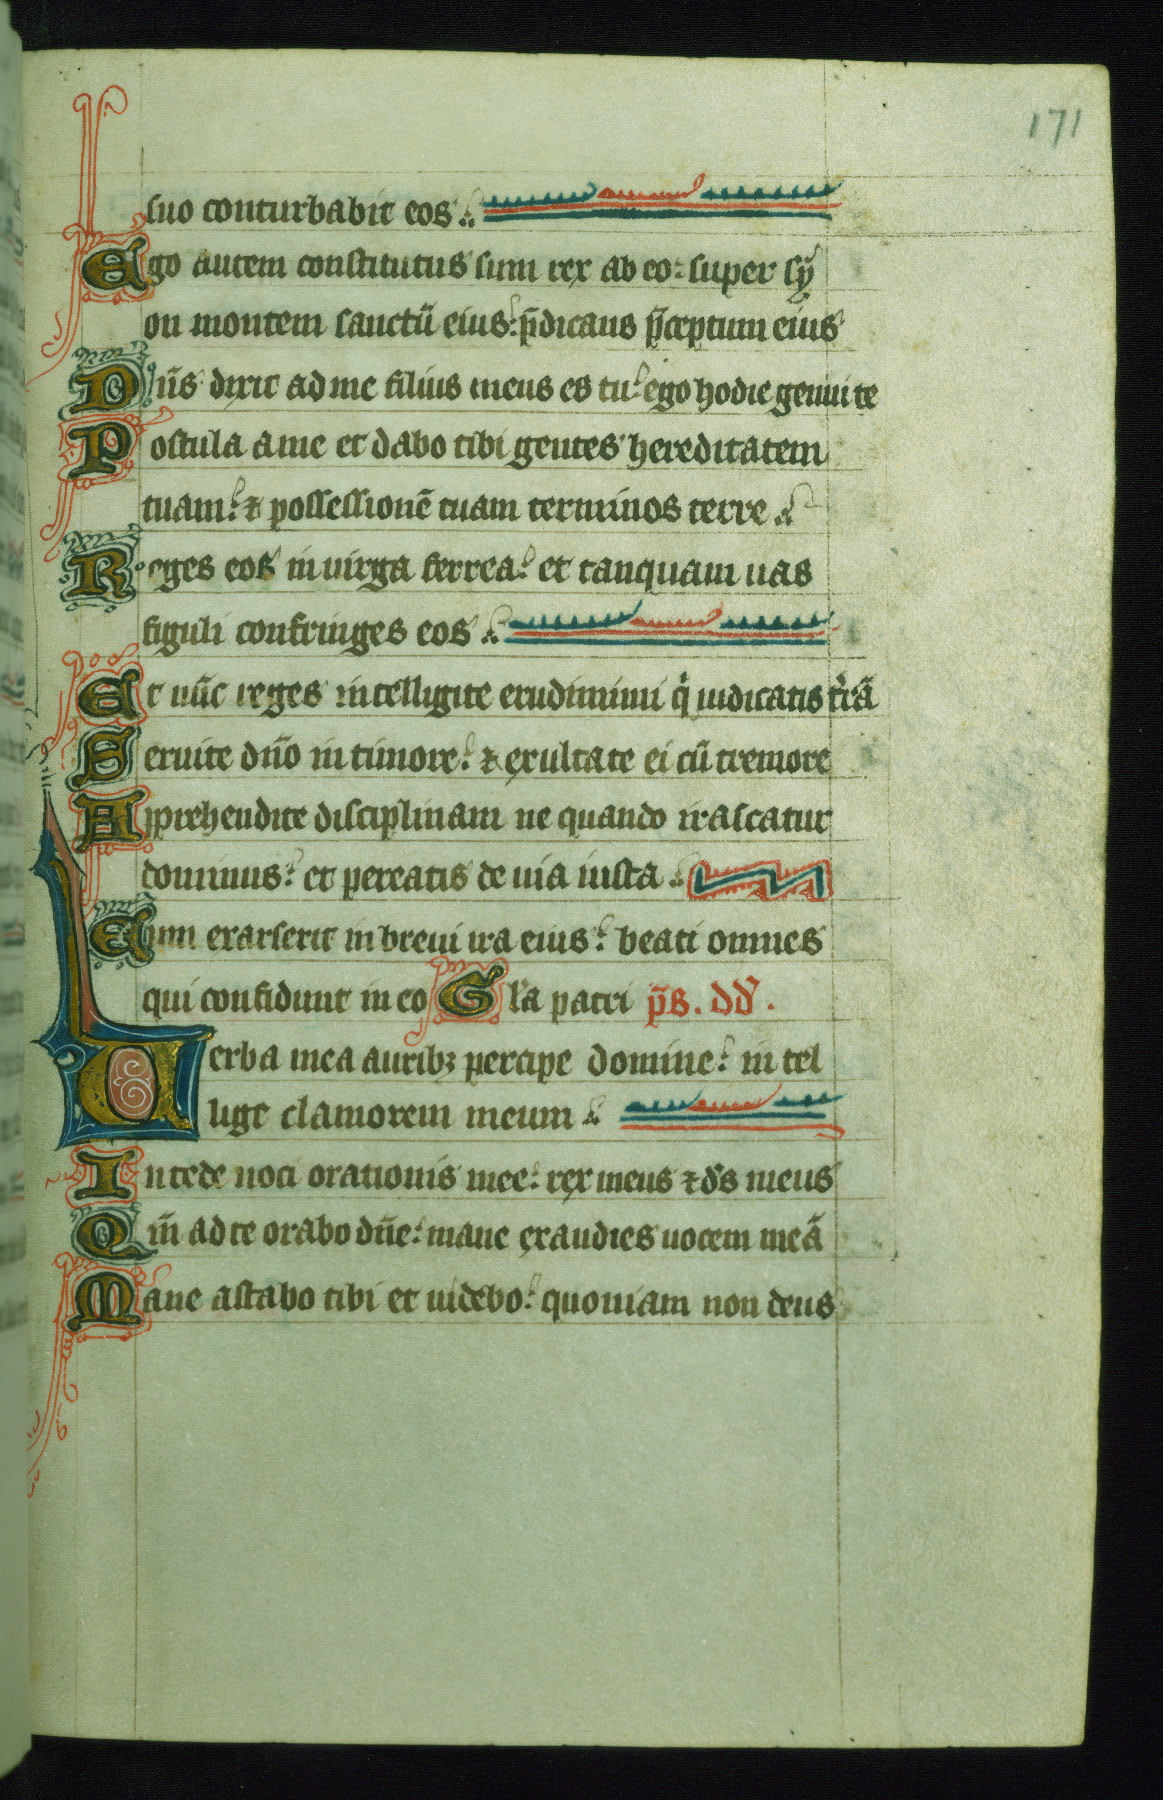 171
suo conturbabit eos
Ego autem constitutus sum rex ab eo: super sy
on montem sanctū eius: p̄dicans p̄ceptum eius
Dn̄s dixit ad me filius meus es tu: ego hodie genui te
Postula a me et dabo tibi gentes hereditatem
tuam: ⁊ possessionē tuam terminos terre
Reges eos in uirga ferrea: et tanquam uas
figuli confringes eos
Et nūc reges intelligite erudimini q̇ iudicatis t̄rā
Seruite dn̄o in timore: ⁊ exultate ei cū tremore
Apprehendite disciplinam ne quando irascatur
dominus: et pereatis de uia iusta
Cum exarserit in breui ira eius: beati omnes
qui confidunt in eo Gl̄a patri p̄s. dd̄.
Uerba mea auribꝫ percipe domine: in tel
lige clamorem meum
Intēde uoci orationis mee: rex meus ⁊ ds̄ meus
Qm̄ ad te orabo dn̄e: mane exaudies uocem meā
Mane astabo tibi et uidebo: quoniam non deus